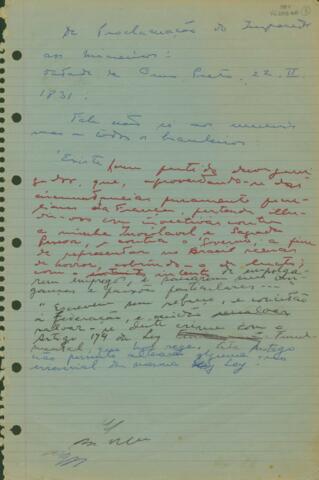 Da Proclamação do Imperador
aos mineiros:
datada de Ouro Preto, 22. II.
1831.
Fala não só aos mineiros
mas a todos os brasileiros:
"Existe um partido desorgani-
zador, que, aproveitando-se das
circunstâncias puramente pecu-
liares da França, pretende illu-
dir-vos com invectivas contra
a minha Inviolavel e Sagrada
Pessoa, e contra o Governo, a fim
de representar no Brasil scenas
de horror, cobrindo-o de lucto;
com o intento de empolga-
rem empregos, e saciarem suas vin-
ganças e paixões particulares...
"Escrevem sem rebuço, e concitão
á Federação, e cuidão
salvar-se deste crime com o
Artigo 174 da Ley Funda-
mental, que nos rege,
não permitte alteração alguma no
essencial da mesma Ley.